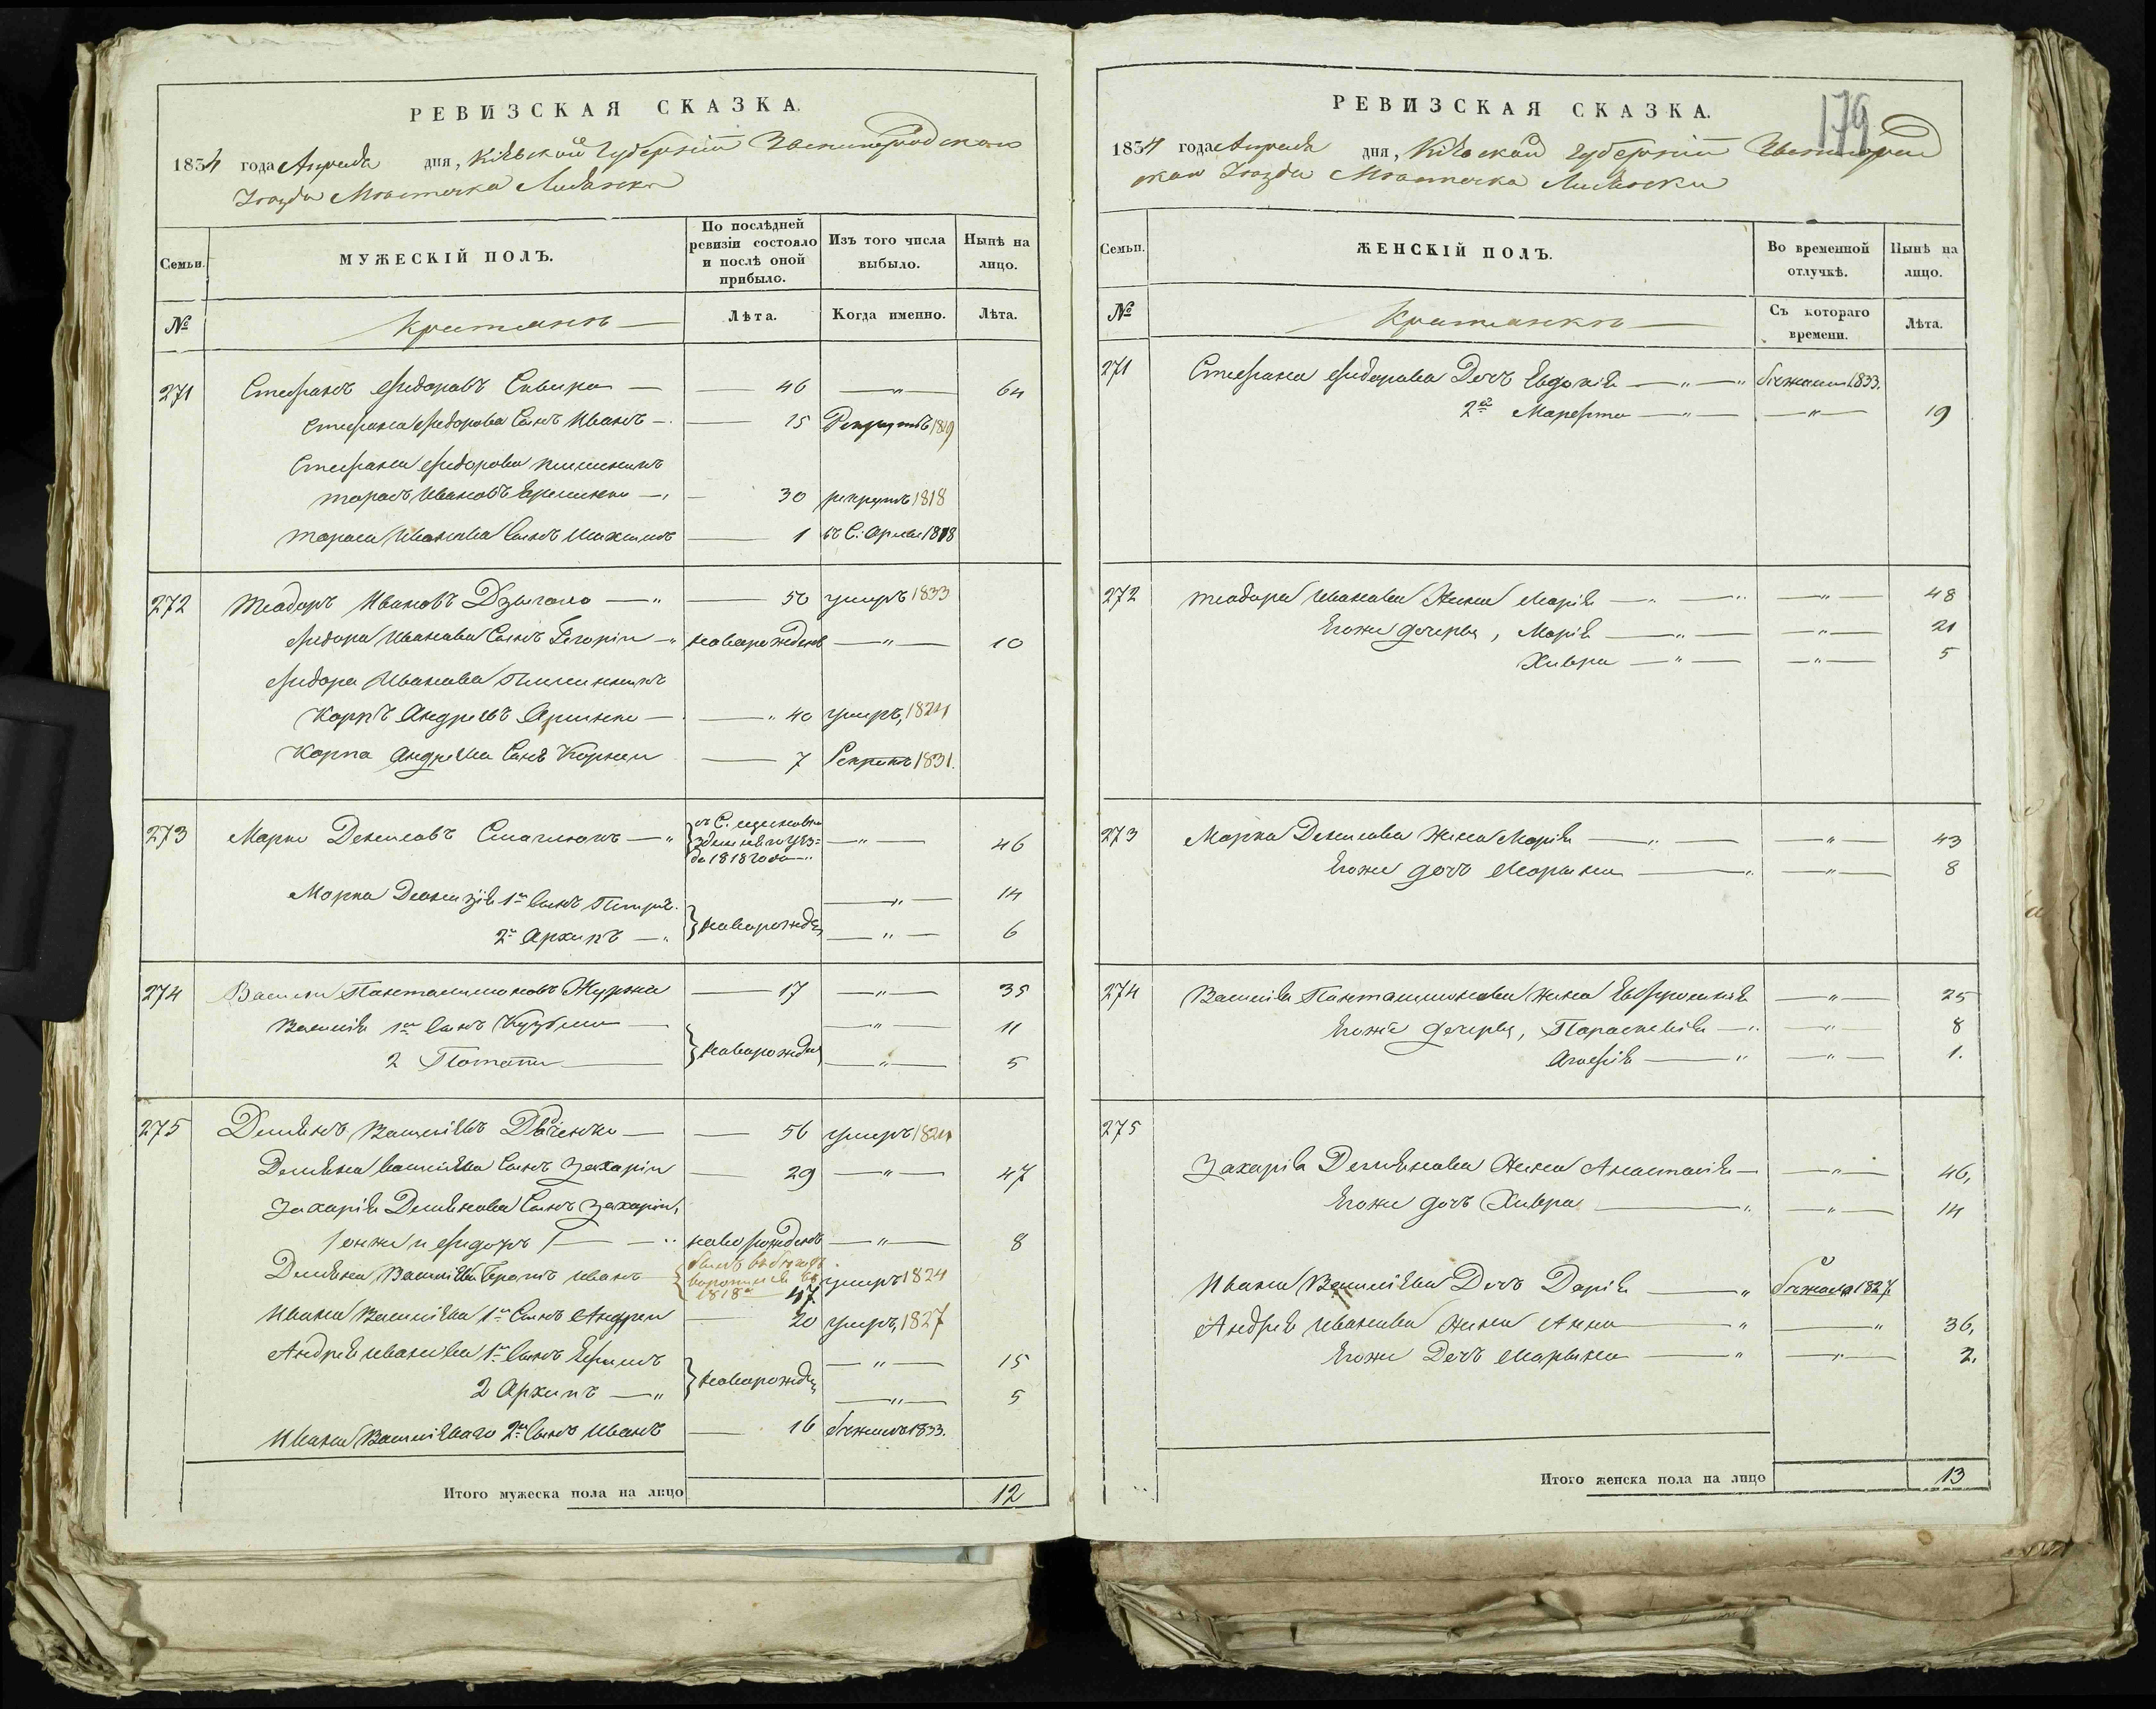 РЕВИЗСКАЯ СКАЗКА.
1834 года Апреля дня, Кіевской Губерніи Звенигородскаго
Уезда Местечка Лисянки
Семьи.
МУЖЕСКІЙ ПОЛЪ.
По послѣдней ревизіи состояло и послѣ оной прибыло.
Изъ того числа выбыло.
Нынѣ на лицо.
№
Крестьянъ
Лѣта.
Когда именно.
Лѣта.
271 Стефанъ Фидоровъ 46 64
Стефана Фидорова Сынъ Иванъ 25 Рекрутъ 1819
Стефана Фидорова племенникъ
Тарасъ Ивановъ 30 рекрутъ 1818
Тараса Иванова Сынъ 1 1818
272 Теодоръ Ивановъ Дзыгало 50 умеръ 1833
Фидора Иванова Сынъ Григорій новорожденъ 10
Фидора Иванова Племенникъ
Карпъ Андреевъ 40 умеръ, 1824
Карпа Андреева Сынъ Корней 7 Рекрутъ 1831.
273 Марко Денисовъ въ С. 1818 года 46
Марка 1й Сынъ Петръ 14
2й Архипъ новорожден 6
274 Василій Пантелимоновъ Журжа 17 35
Василія 1й Сынъ Кузьма 11
2 Потапій новорожден 5
275 Демьянъ Васильевъ 56 умеръ 1824
Демьяна Васильева Сынъ Захарій 29 47
Захарія Демьянова Сынъ Захарій,
онже и Фидоръ новорожденъ 8
Демьяна Васильева Братъ Иванъ былъ въ бегахъ 1818 47 умеръ 1824
Ивана Васильева 1й Сынъ Андрей 20 умеръ, 1827
Андрея Иванова 1й Сынъ Ефимъ 15
2 Архипъ новорожден 5
Ивана Васильева 2й Сынъ Иванъ 16 бежалъ 1833.
Итого мужеска пола на лицо 12
179
РЕВИЗСКАЯ СКАЗКА.
1834 года Апреля дня, Кіевской Губерніи Звенигород
скаго Уезда Местечка Лисянки
Семьи.
ЖЕНСКІЙ ПОЛЪ.
Во временной отлучкѣ.
Нынѣ на лицо.
№
Крестьянкъ
Съ котораго времени.
Лѣта.
271 Стефана Фидорова Дочъ Евдокія бежала 1833.
2я Марфта 19
272 Теодора Иванова Жена Марія 48
Егоже дочерья, Марія 21
Хивря 5
273 Марка Денисова Жена Марія 43
Егоже дочъ Марына 8
274 Василія Пантелимонова Жена Евфросинія 25
Егоже дочерья, Параскевія 8
Агафія 1.
275
Захарія Демьянова Жена Анастасія 46,
Егоже дочъ Хивря 14
Ивана Васильева Дочъ Дарія бежала 1827
Андрея Иванова Жена Анна 36,
Егоже Дочъ Марына 2.
Итого женска пола на лицо 13